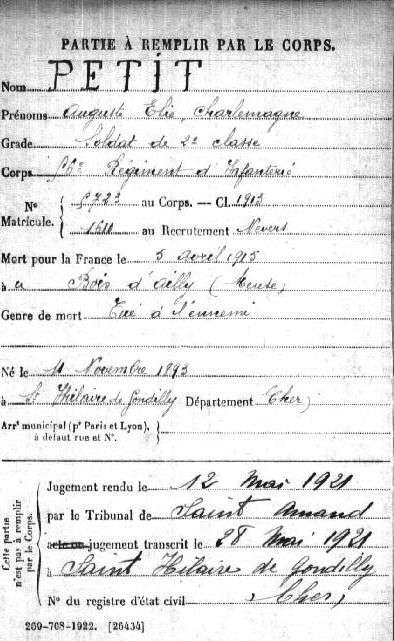 PARTIE À REMPLIR PAR LE CORPS.
Nom PETIT
Prénoms Auguste Elie Charlemagne
Grade Soldat de 2e classe
Corps 56e Régiment d'Infanterie
N° Matricule. { 5723 au Corps. — Cl. 1913
1511 au Recrutement Nevers
Mort pour la France le 5 avril 1915
à au Bois d'Ailly (Meuse)
Genre de mort Tué à l'ennemi
Né le 11 Novembre 1893
à St Hilaire de Gondilly Département Cher)
Arrt municipal (pr Paris et Lyon), }
à défaut rue et N°.
Cette partie n'est pas à remplir par le Corps.
Jugement rendu le 12 Mai 1921
par le Tribunal de Saint Amand
acte ou jugement transcrit le 28 Mai 1921
à Saint Hilaire de Gondilly
N° du registre d'état civil Cher)
269-708-1922. [26434]